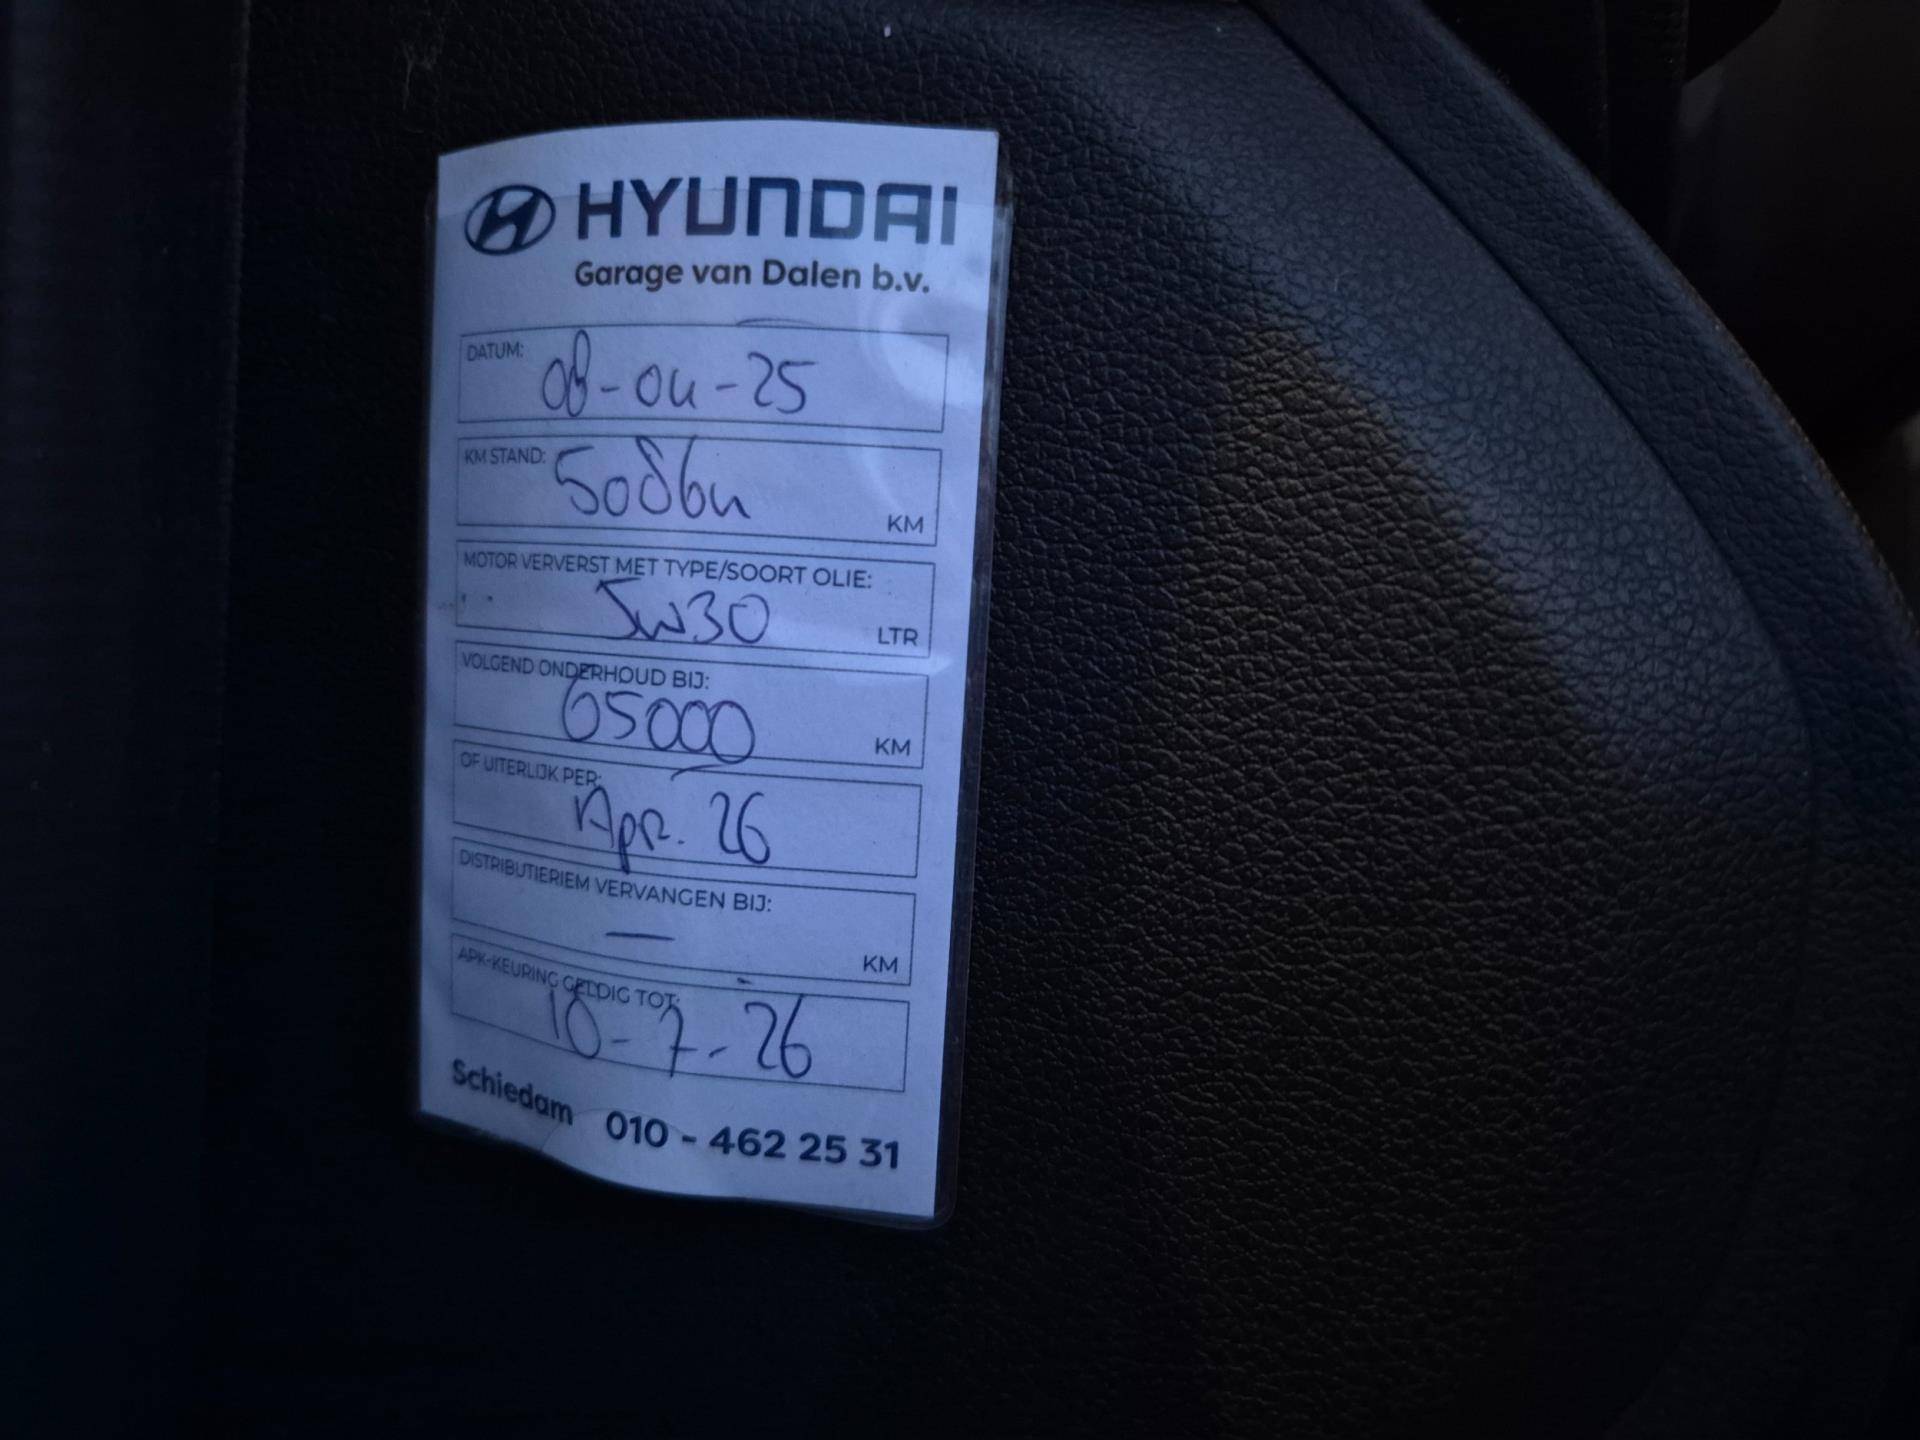 HYUNDAI
Garage van Dalen b.v.
DATUM:
08-04-25
KM STAND:
50864
KM
MOTOR VERVERST MET TYPE/SOORT OLIE:
5W30
LTR
VOLGEND ONDERHOUD BIJ:
65000
KM
OF UITERLIJK PER:
Apr. 26
DISTRIBUTIERIEM VERVANGEN BIJ:
—
KM
APK-KEURING GELDIG TOT:
10-7-26
Schiedam 010 - 462 25 31